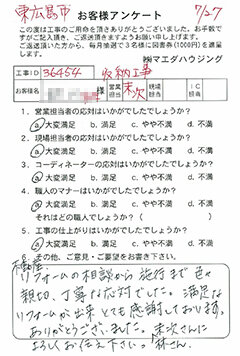 東広島市
7/27
お客様アンケート
この度は工事のご用命を頂きありがとうございました。お手数で
すがご記入頂き、ご返送頂きますようお願い申し上げます。
ご返送頂いた方から、毎月抽選で3名様に図書券(1000円)を進呈
します。
㈱マエダハウジング
工事ID 36454 収納工事
お客様名 様 営業担当 末次 現場担当 IC担当
1. 営業担当者の応対はいかがでしたでしょうか?
a 大変満足 b. 満足 c. やや不満 d. 不満
2. 現場担当者の応対はいかがでしたでしょうか?
a 大変満足 b. 満足 c. やや不満 d. 不満
3. コーディネーターの応対はいかがでしたでしょうか?
a 大変満足 b. 満足 c. やや不満 d. 不満
4. 職人のマナーはいかがでしたでしょうか?
a 大変満足 b. 満足 c. やや不満 d. 不満
それはどの職人でしょうか?( )
5. 工事の仕上がりはいかがでしたでしょうか?
a 大変満足 b. 満足 c. やや不満 d. 不満
6. その他、ご意見・ご要望をお書き下さい。
リフォームの相談から施行まで色々
親切、丁寧な応対でした。満足な
リフォームが出来とても感謝しております。
ありがとうございました。末次さんに
よろしくお伝え下さい。林さん